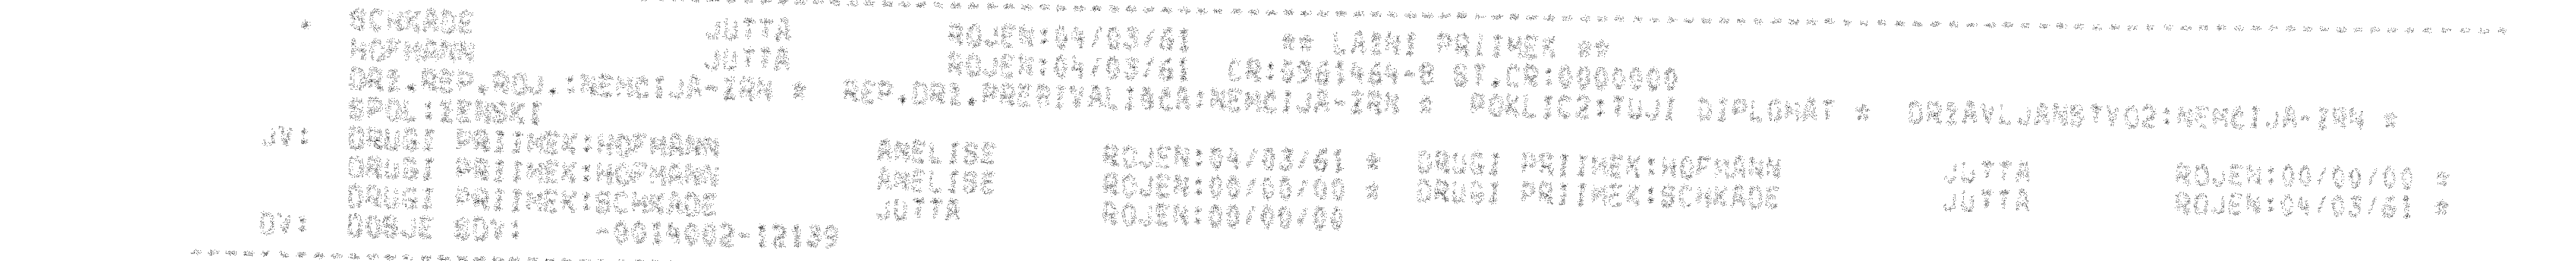 * SCHKADE JUTTA ROJEN:04/03/61 ** LAZNI PRIIMEK **
HOFMANN JUTTA ROJEN:04/03/61 CR:6961464-8 ST.CR:0000000
DRZ.REP.ROJ.:NEMCIJA-ZRN * REP.DRZ.PREBIVALISCA:NEMCIJA-ZRN * POKLIC2:TUJI DIPLOMAT * DRZAVLJANSTVO2:NEMCIJA-ZRN *
SPOL:ZENSKI
JV: DRUGI PRIIMEK:HOFMANN ANELISE ROJEN:04/03/61 * DRUGI PRIIMEK:HOFMANN JUTTA ROJEN:00/00/00 *
DRUGI PRIIMEK:HOFMANN ANELISE ROJEN:00/00/00 * DRUGI PRIIMEK:SCHKADE JUTTA ROJEN:04/03/61 *
DRUGI PRIIMEK:SCHKADE JUTTA ROJEN:00/00/00
DV: DOSJE SDV: -0014002-12139